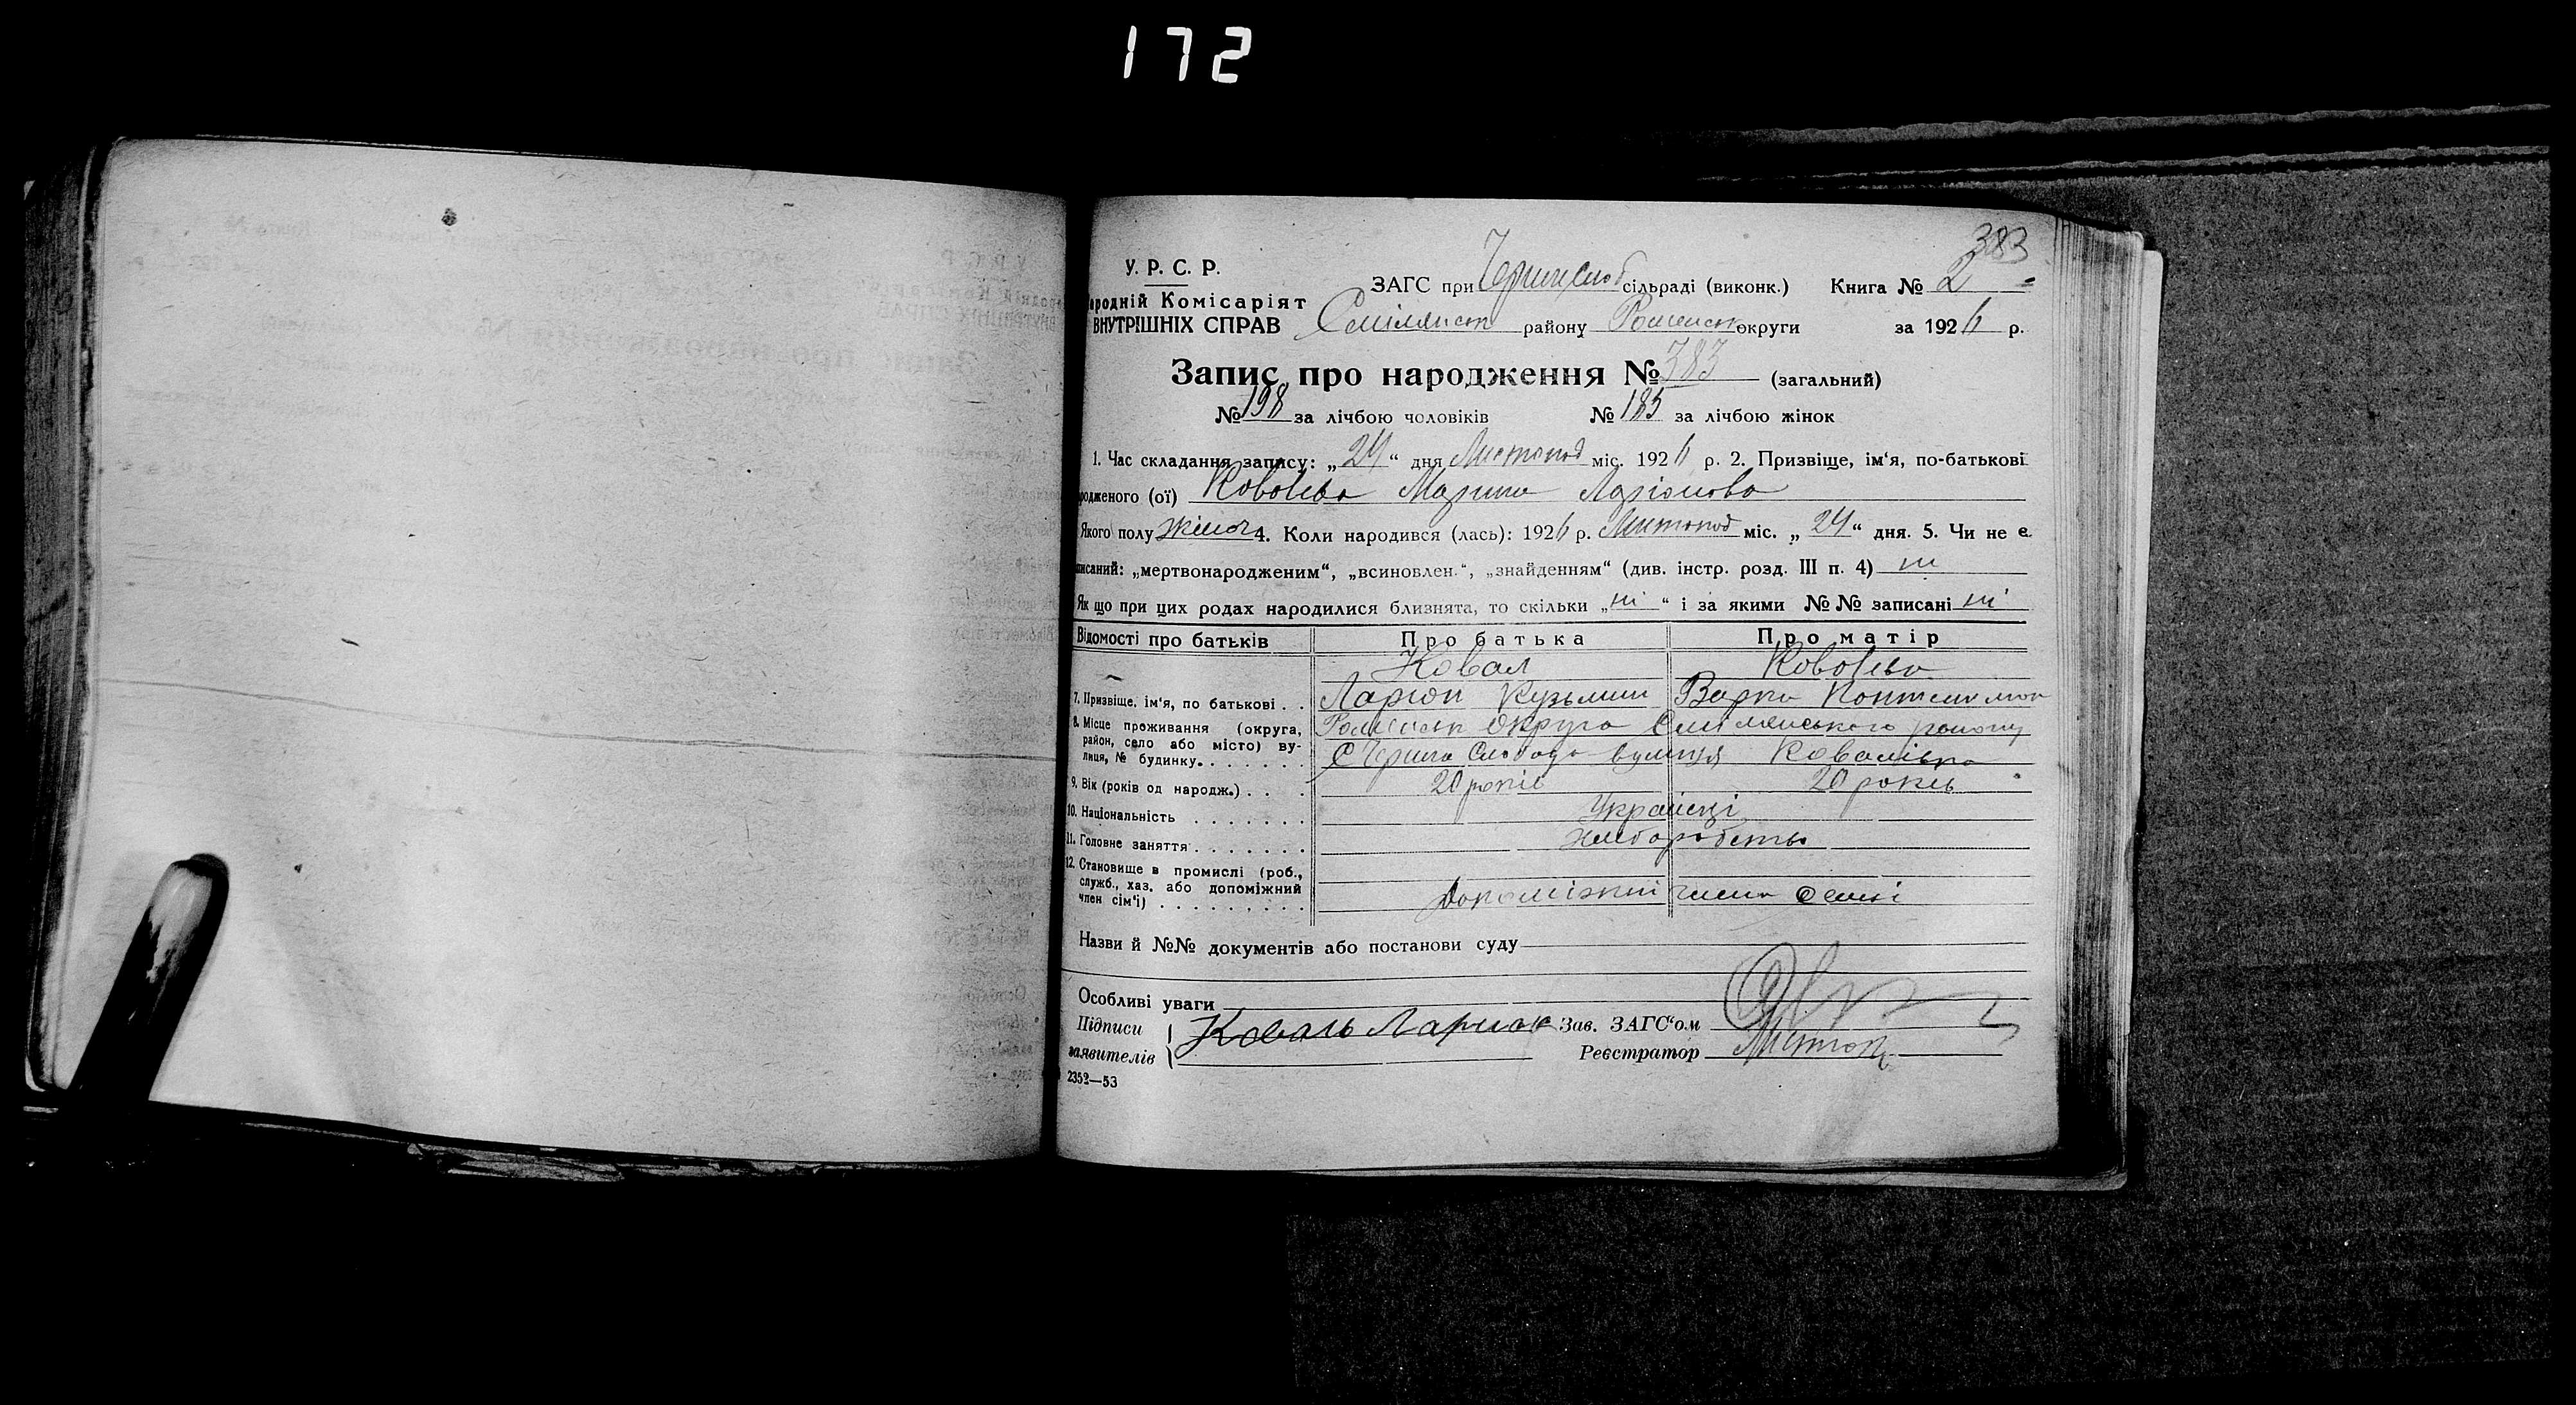 172
383
У. Р. С. Р.
ЗАГС при Чернечслоб сільраді (виконк.) Книга № 2
ародній Комісаріят
ВНУТРІШНІХ СПРАВ
Смілянськ району Роменськ округи за 1926 р.
Запис про народження № 383 (загальний)
№ 198 за лічбою чоловіків № 185 за лічбою жінок
1. Час складання запису: „24“ дня Листопад міс. 1926 р. 2. Призвіще, ім‘я, по-батькові
родженого (ої) Ковалева Марина Ларіонова
Якого полу жіноч 4. Коли народився (лась): 1926 р. Листопад міс. „24“ дня. 5. Чи не є
писаний: „мертвонародженим“, „всиновлен.“, „знайденням“ (див. інстр. розд. III п. 4) ні
Як що при цих родах народилися близнята, то скільки „ні“ і за якими №№ записані ні
Відомості про батьків Про батька Про матір
Ковал Ковалева
7. Призвіще, ім‘я, по батькові . . Ларіон Кузьмин Варка
8. Місце проживання (округа, район, село або місто) вулиця, № будинку. Роменськ округа району
Слобода вулиця Ковалівка
9. Вік (років од народж.) . . . 20 років 20 років
10. Національність . . . . . . . Українці
11. Головне заняття . . . . . . . хліборобство
12. Становище в промислі (роб., служб., хаз. або допоміжний член сім‘ї) . . . . . . . . . допоміжний члена семії
Назви й №№ документів або постанови суду
Особливі уваги
Підписи заявителів Коваль Ларион Зав. ЗАГС‘ом
Реєстратор
2352—53